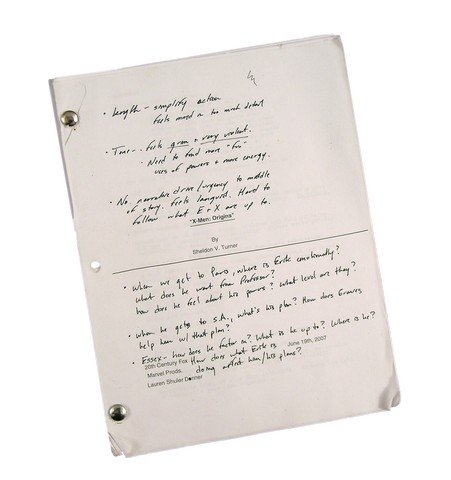 • Length – simplify action
feels mired in too much detail
• Tone – feels grim + very violent.
Need to find more "fun"
uses of powers + more energy.
• No narrative drive/urgency to middle
of story. Feels languid. Hard to
follow what E + X are up to.
"X-Men: Origins"
By
Sheldon V. Turner
• when we get to Paris, where is Erik emotionally?
what does he want from Professor?
how does he feel about his powers? what level are they?
• when he gets to S.A., what's his plan? How does
help him w/ that plan?
• Essex – how does he factor in? What is he up to? Where is he?
How does what Erik is
June 19th, 2007
20th Century Fox
doing affect him/his plans?
Marvel Prods.
Lauren Shuler Donner